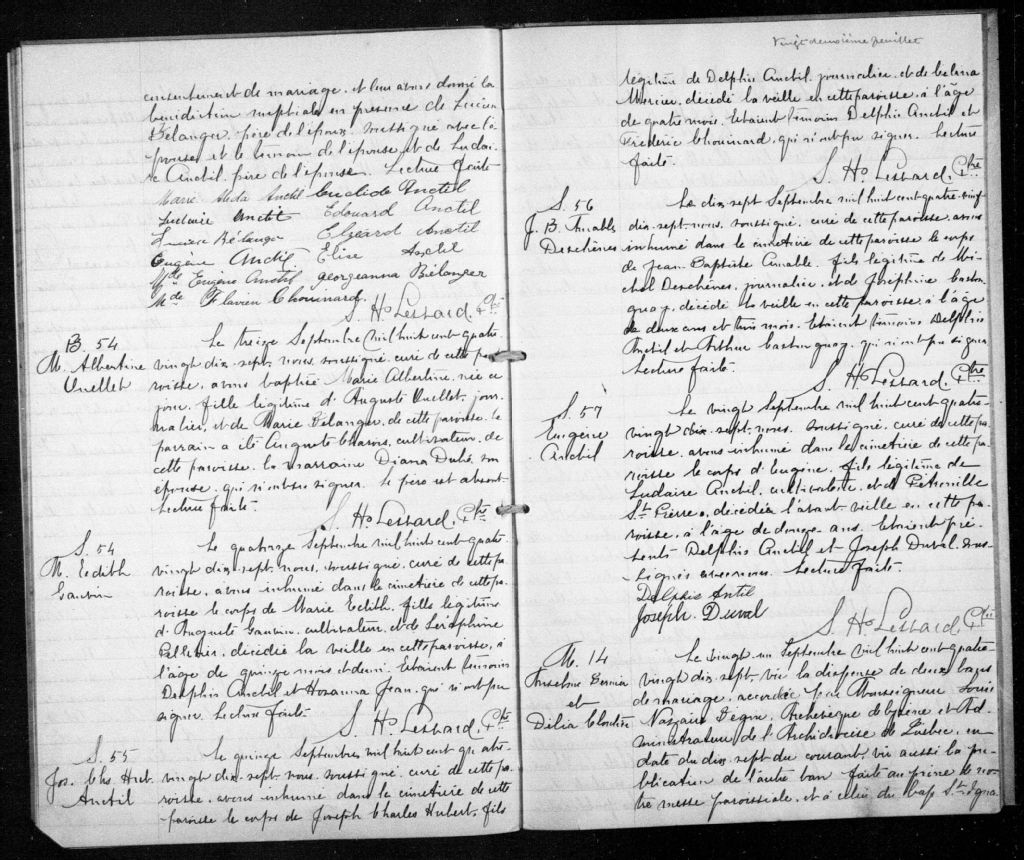 consentement de mariage, et leur avons donné la
bénédiction nuptiale en présence de Lucien
Bélanger, père de l'époux, soussigné avec l'é-
pouse et le témoin de l'épouse et de Ludai-
re Anctil, père de l'épouse. Lecture faite.
Marie Anctil Anctil
Anctil Edouard Anctil
Bélanger Elzéard Anctil
Eugène Anctil Elise Anctil
Mde Eugène Anctil Georgeanna Bélanger
Mde Flavien Chouinard.
S. Ho Lessard, Ptre
B. 54
M. Albertine
Ouellet
Le treize Septembre mil huit cent quatre-
vingt dix-sept, nous, soussigné, curé de cette pa-
roisse, avons baptisé Marie Albertine, née ce
jour, fille légitime d'Auguste Ouellet, jour-
nalier, et de Marie Bélanger, de cette paroisse. Le
parrain a été Auguste Charois, cultivateur, de
cette paroisse, la marraine Diana Dubé, son
épouse, qui n'ont su signer. Le père est absent.
Lecture faite.
S. Ho Lessard, Ptre
S. 54
M. Edith
Gauvin
Le quatorze Septembre mil huit cent quatre-
vingt dix-sept, nous, soussigné, curé de cette pa-
roisse, avons inhumé dans le cimetière de cette pa-
roisse le corps de Marie Edith, fille légitime
d'Auguste Gauvin, cultivateur, et de Séraphine
Pelletier, décédée la veille en cette paroisse, à
l'âge de quinze mois et demi. Etaient témoins
Delphis Anctil et Hosanna Jean, qui n'ont pu
signer. Lecture faite.
S. Ho Lessard, Ptre
S. 55
Jos. Chs Hub.
Anctil
Le quinze Septembre mil huit cent quatre-
vingt dix-sept, nous, soussigné, curé de cette pa-
roisse, avons inhumé dans le cimetière de cette
paroisse le corps de Joseph Charles Hubert, fils
Vingt deuxième feuillet
légitime de Delphis Anctil, journalier, et de Célina
Mercier, décédé la veille en cette paroisse, à l'âge
de quatre mois. Etaient témoins Delphis Anctil et
Frédéric Chouinard, qui n'ont pu signer. Lecture
faite.
S. Ho Lessard, Ptre
S. 56
J. B. Amable
Deschênes
Le dix-sept Septembre mil huit cent quatre-vingt
dix-sept, nous, soussigné, curé de cette paroisse, avons
inhumé dans le cimetière de cette paroisse le corps
de Jean-Baptiste Amable, fils légitime de Mi-
chel Deschênes, journalier, et de Joséphine Caston-
guay, décédé la veille en cette paroisse, à l'âge
de deux ans et trois mois. Etaient témoins Delphis
Anctil et Arthur Castonguay, qui n'ont pu signer.
Lecture faite.
S. Ho Lessard, Ptre
S. 57
Eugène
Anctil
Le vingt Septembre mil huit cent quatre-
vingt dix-sept, nous, soussigné, curé de cette pa-
roisse, avons inhumé dans le cimetière de cette pa-
roisse le corps d'Eugène, fils légitime de
Ludaire Anctil, cultivateur, et de Pétronille
St Pierre, décédé l'avant-veille en cette pa-
roisse, à l'âge de douze ans. Etaient pré-
sents Delphis Anctil et Joseph Duval, sous-
signés avec nous. Lecture faite.
Delphis Antil
Joseph Duval
S. Ho Lessard, Ptre
M. 14
Anselme Bernier
et
Délia Cloutier
Le vingt-un Septembre mil huit cent quatre-
vingt dix-sept, vu la dispense de deux bans
de mariage, accordée par Monseigneur Louis
Nazaire Bégin, Archevêque de Cyrène et Ad-
ministrateur de l'Archidiocèse de Québec, en
date du dix-sept du courant, vu aussi la pu-
blication de l'autre ban faite au prône de no-
tre messe paroissiale, et à celui du Cap St Igna-